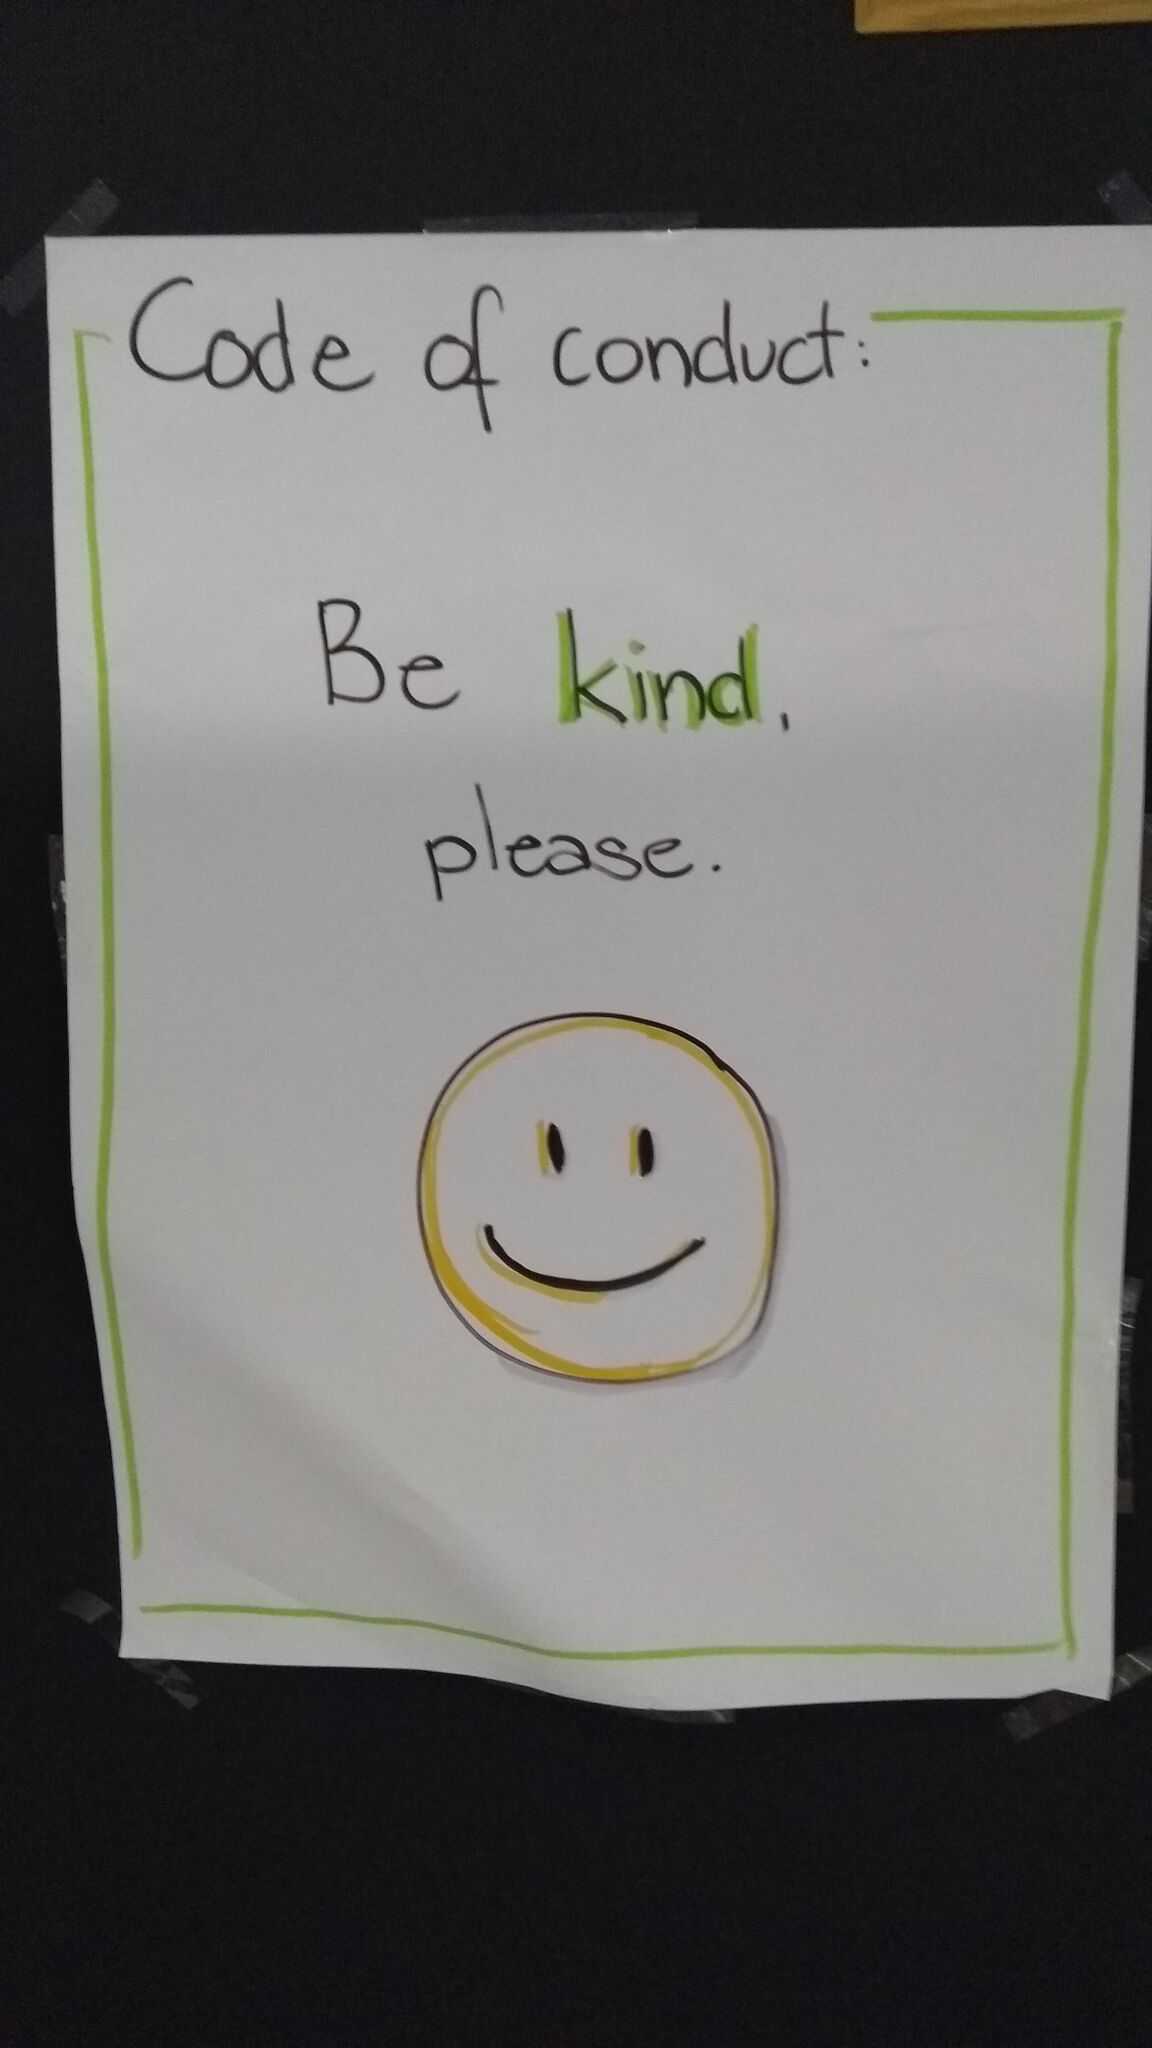 Code of conduct:
Be kind,
please.